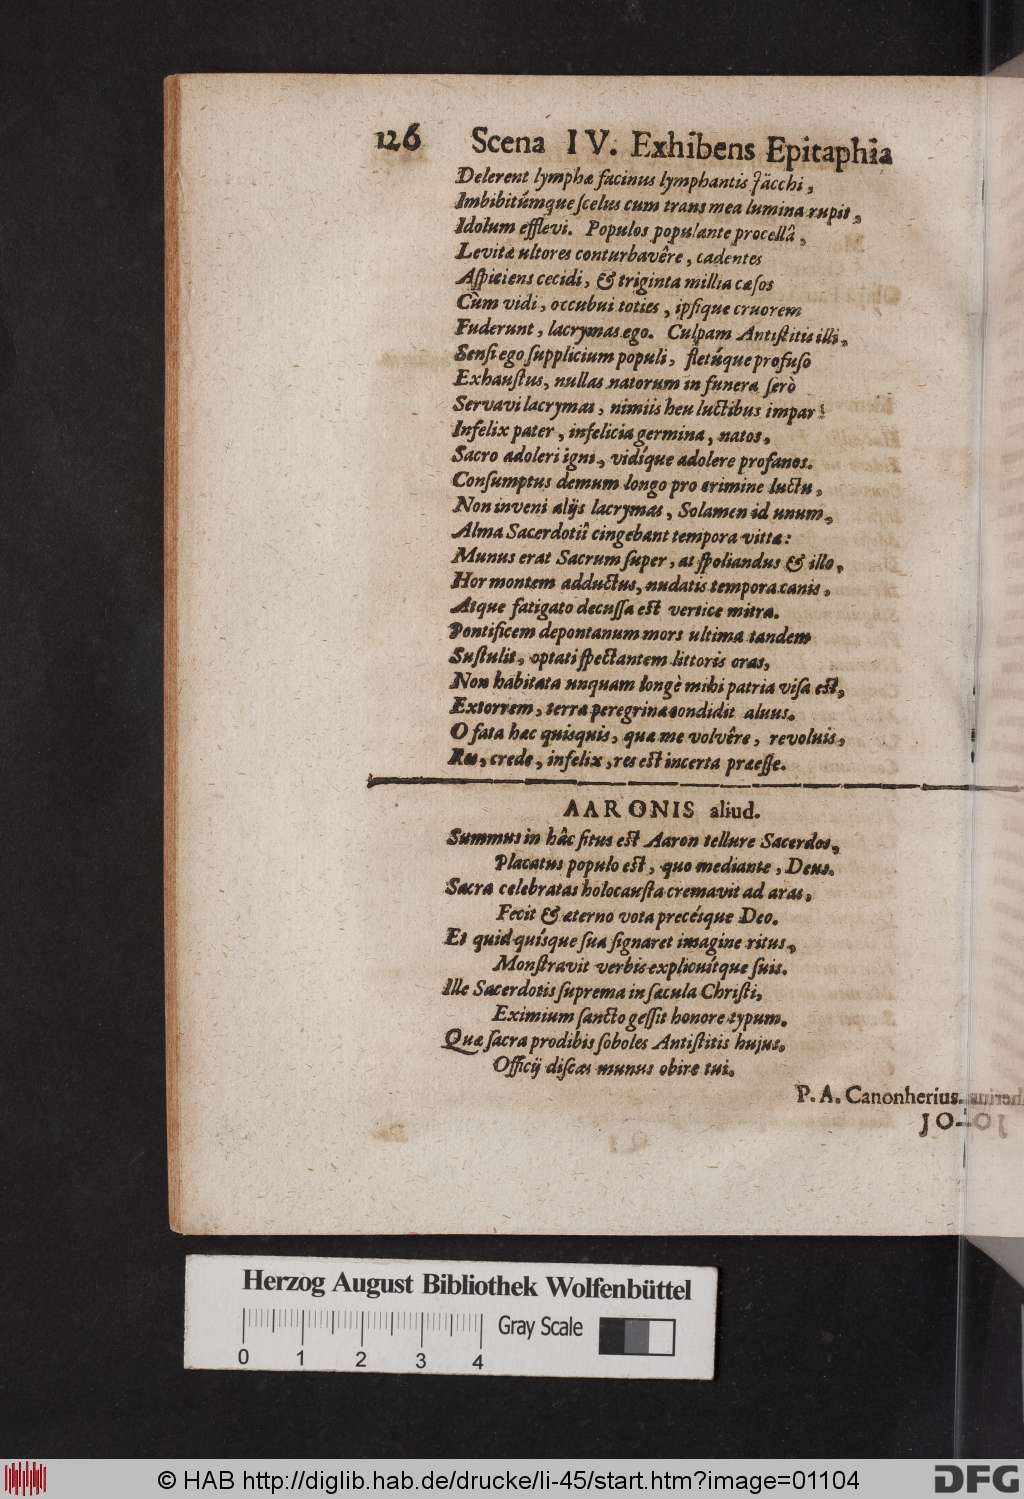 126 Scena IV. Exhibens Epitaphia
Delerent lymphæ facinus lymphantis Jäcchi,
Imbibitúmque ſcelus cum trans mea lumina rupit,
Idolum efflevi. Populos populante procellâ,
Levitæ ultores conturbavêre, cadentes
Aſpiciens cecidi, & triginta millia cæſos
Cùm vidi, occubui toties, ipſique cruorem
Fuderunt, lacrymas ego. Culpam Antiſtitis illi,
Senſi ego ſupplicium populi, fletúque profuſo
Exhauſtus, nullas natorum in funera ſerò
Servavi lacrymas, nimiis heu luctibus impar!
Infelix pater, infelicia germina, natos,
Sacro adoleri igni, vidíque adolere profanos.
Conſumptus demum longo pro crimine luctu,
Non inveni alijs lacrymas, Solamen id unum,
Alma Sacerdotii cingebant tempora vittæ:
Munus erat Sacrum ſuper, at ſpoliandus & illo,
Hor montem adductus, nudatis tempora canis,
Atque fatigato decuſſa eſt vertice mitra.
Pontificem depontanum mors ultima tandem
Suſtulit, optati ſpectantem littoris oras,
Non habitata unquam longè mihi patria viſa eſt,
Extorrem, terra peregrina condidit alvus.
O fata hæc quisquis, quæ me volvêre, revoluis,
Res, crede, infelix, res eſt incerta præeſſe.
AARONIS aliud.
Summus in hâc ſitus eſt Aaron tellure Sacerdos,
Placatus populo eſt, quo mediante, Deus.
Sacra celebratas holocauſta cremavit ad aras,
Fecit & æterno vota precésque Deo.
Et quid quísque ſua ſignaret imagine ritus,
Monſtravit verbis explicuítque ſuis.
Ille Sacerdotis ſuprema in ſæcula Chriſti,
Eximium ſancto geſſit honore typum.
Quæ ſacra prodibis ſoboles Antiſtitis hujus,
Officij diſcas munus obire tui.
P. A. Canonherius.
JO-
Herzog August Bibliothek Wolfenbüttel
Gray Scale
0 1 2 3 4
© HAB http://diglib.hab.de/drucke/li-45/start.htm?image=01104
DFG